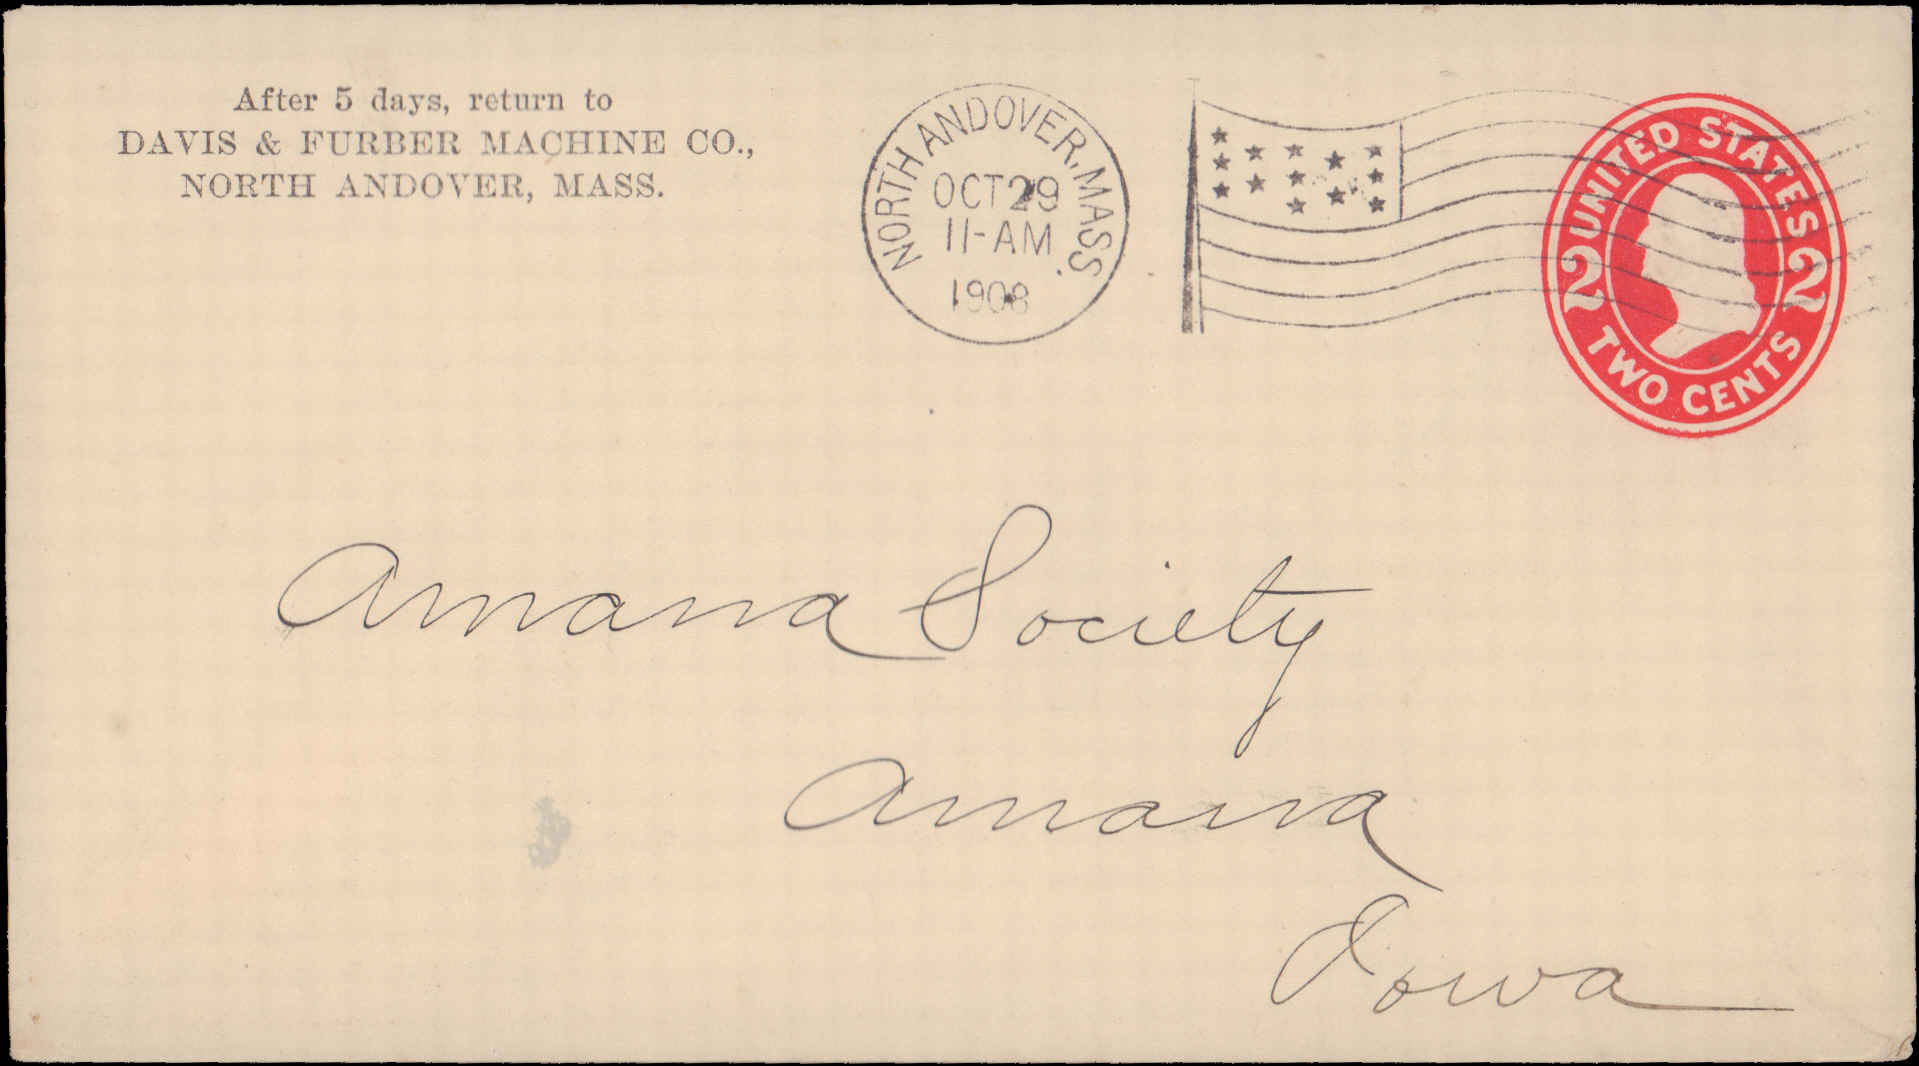 After 5 days, return to
DAVIS & FURBER MACHINE CO.,
NORTH ANDOVER, MASS.
NORTH ANDOVER, MASS.
OCT 29
11-AM
1908
UNITED STATES
2 2
TWO CENTS
Amana Society
Amana
Iowa